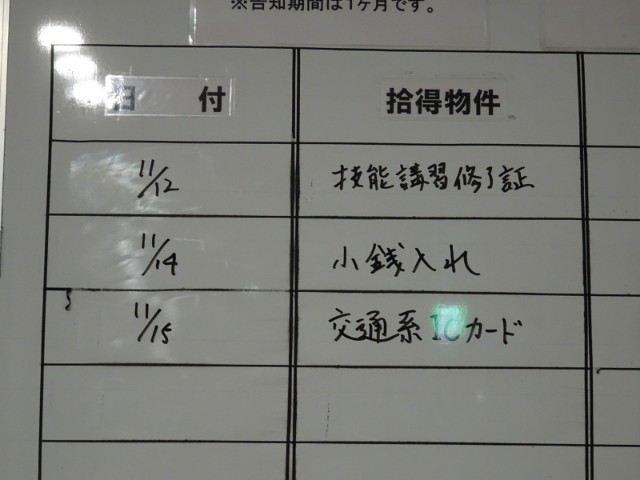 ※告知期間は1ヶ月です。
日 付 拾得物件
11/12 技能講習修了証
11/14 小銭入れ
11/15 交通系ICカード